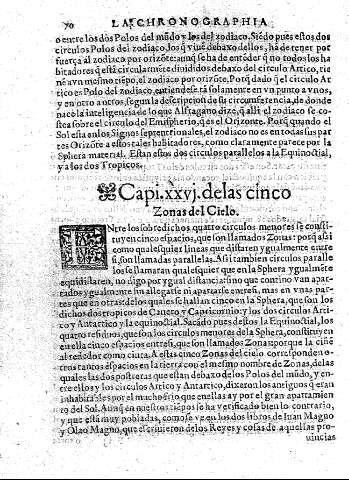 70 LA CHRONOGRAPHIA
o entre los dos Polos del mũdo y los del zodiaco. Siẽdo pues estos dos
circulos Polos del zodiaco, los q̃ viuẽ debaxo dellos, hã de tener por
fuerça al zodiaco por orizõte: aunq̃ se ha de entẽder q̃ no todos los ha
bitadores q̃ estã circularmẽte diuididos debaxo del circulo Artico, tie
nẽ a vn mesmo tiẽpo, el zodiaco por orizõte. Porq̃ dado q̃ el circulo Ar
tico es Polo del zodiaco, entiendese ta solamente en vn punto a vnos,
y en otro a otros, segun la descripcion de su circumferencia, de donde
nace la inteligencia de lo que Alfragano dize, q̃ alli el zodiaco se co-
stea sobre el circulo del Emispherio, que es el Orizonte. Porq̃ quando el
Sol esta en los Signos septentrionales, el zodiaco no es en todas sus par
tes Orizõte a estos tales habitadores, como claramente parece por la
Sphera material. Estan estos dos circulos parallelos a la Equinoctial,
y a los dos Tropicos.
Capi. xxvj. de las cinco
Zonas del Cielo.
ENtre los sobredichos quatro circulos menores se consti
tuyen cinco espacios, que son llamados Zonas: porq̃ assi
como qualesquier lineas que distan ygualmente entre
si, son llamadas parallelas. Assi tambien circulos parallel
los se llamaran qualesquier que en la Sphera ygualmẽte
equidistaren, no digo por ygual distancia, sino que contino van apar
tados ygualmente sin allegarse ni apartarse entresi, mas en vnas par-
tes que en otras: delos quales se hallan cinco en la Sphera, que son los
dichos dos tropicos de Cancro y Capricornio: y los dos circulos Arti-
co y Antartico y la equinoctial. Sacado pues destos la Equinoctial, los
quatro residuos, que son los circulos menores de la Sphera, constituyen
en ella cinco espacios entresi, que son llamados Zonas: porque la ciñẽ
al rededor como cinta. A estas cinco Zonas del cielo corresponden o-
tros tantos espacios en la tierra con el mesmo nombre de Zonas, delas
quales las dos postreras que estan debaxo de los Polos del mũdo, y en-
tre ellos y los circulos Artico y Antartico, dixeron los antiguos q̃ eran
inhabitables por el mucho frio que en ellas ay por el gran apartamien
to del Sol. Aunq̃ en nuestros tiẽpos se ha verificado bien lo contrario,
y que està muy pobladas, como se ve en los dos libros de Iuan Magno
y Olao Magno, que escriuieron de los Reyes y cosas de aquellas pro-
uincias